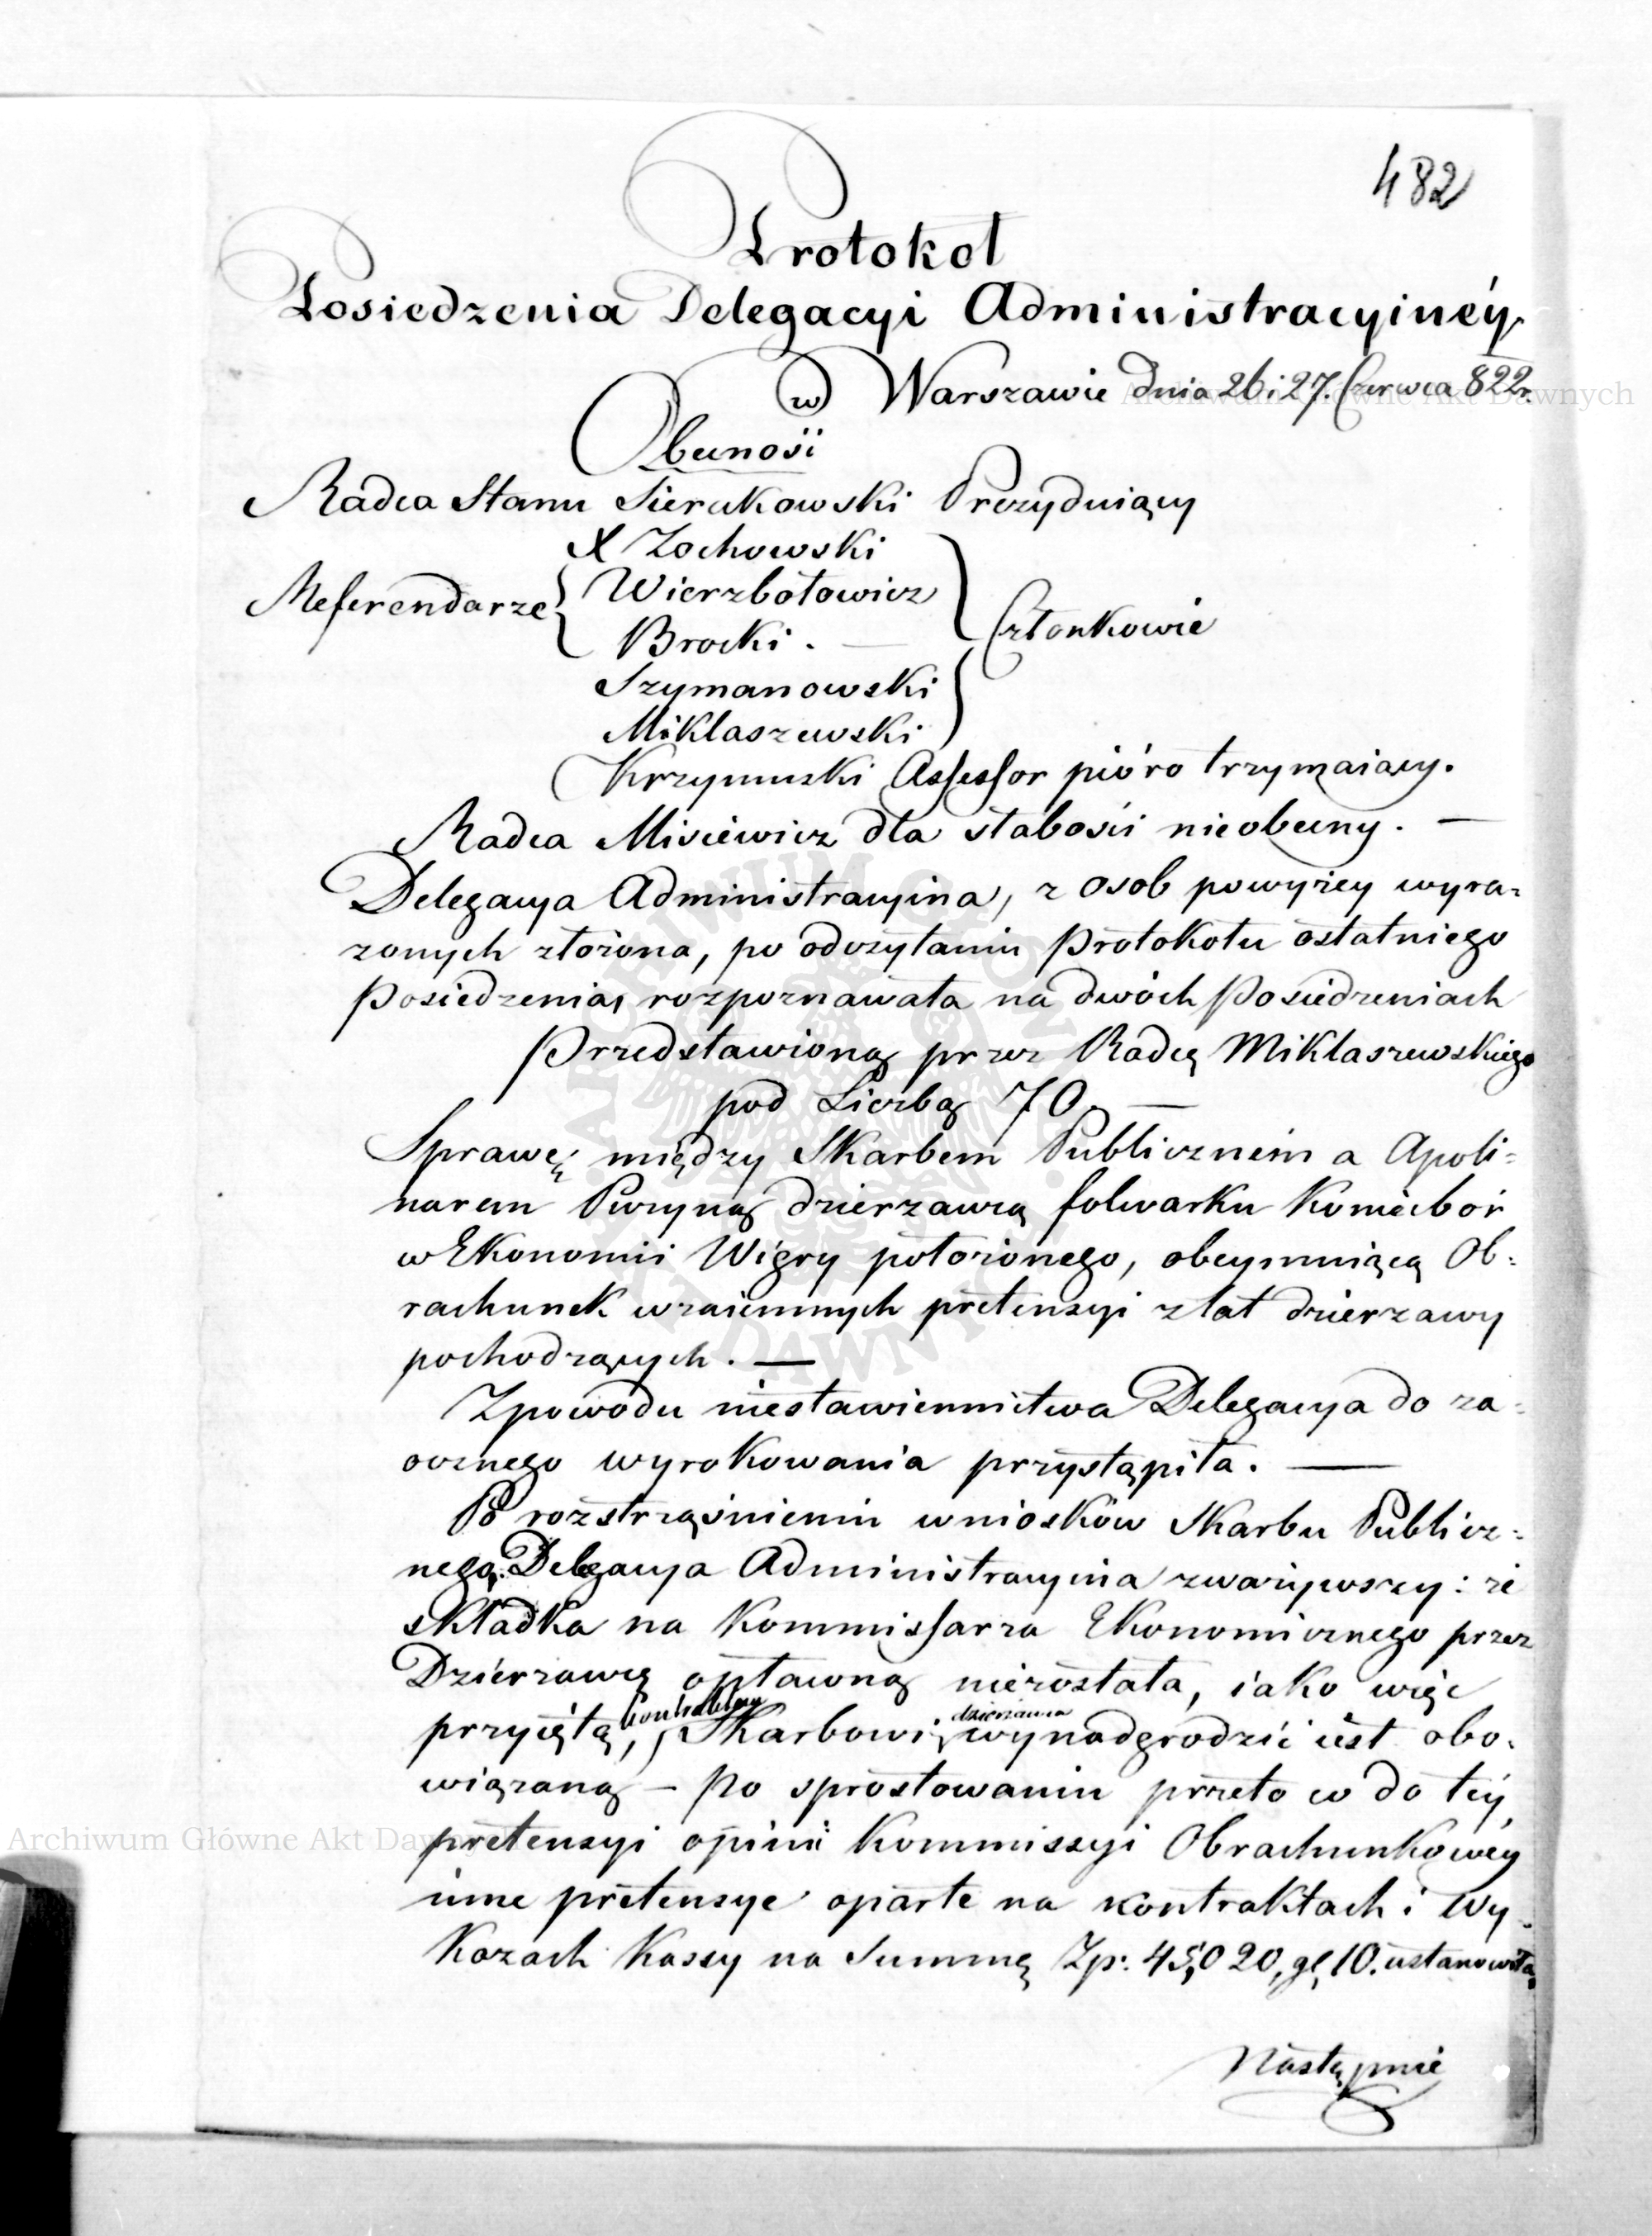 482
Protokół
Posiedzenia Delegacyi Administracyinéy
w Warszawie dnia 26 i 27. Czerwca 822 r.
Obecności
Radca Stanu Sierakowski Prezyduiący
X Zochowski
Referendarze Wierzbołowicz
Brocki. — Członkowie
Szymanowski
Miklaszewski
Krzymuski Assessor pióro trzymaiący.
Radca Misiewicz dla słabości nieobecny. —
Delegacya Administracyina, z osob powyżey wyra-
żonych złożona, po odczytaniu Protokołu ostatniego
Posiedzenia, rozpoznawała na dwóch Posiedzeniach
Przedstawioną przez Radcę Miklaszewskiego
pod Liczbą 70. —
Sprawę między Skarbem Publicznem a Apoli-
narem Puzyną dzierzawcą folwarku Koniecbór
w Ekonomii Wigry położonego, obeymuiącą Ob-
rachunek wzaiemnych pretensyi z lat dzierzawy
pochodzących. —
Z powodu niestawiennictwa Delegacya do za-
ocznego wyrokowania przystąpiła. —
Po rozstrząśnieniu wniosków Skarbu Publicz-
nego, Delegacya Administracyina zważywszy: że
składka na Kommissarza Ekonomicznego przez
Dzierzawcę opłacaną niezostała, iako więc
przyiętą, kontraktem Skarbowi dzierzawca wynadgrodzić iest obo-
wiązaną — Po sprostowaniu przeto co do téy
pretensyi opinii Kommissyi Obrachunkowéy
inne pretensye oparte na kontraktach i Wy-
kazach Kassy na Summę Zp: 45,020, gr, 10. ustanowiła,
Następnie
Archiwum Główne Akt Dawnych
Archiwum Główne Akt Dawnych